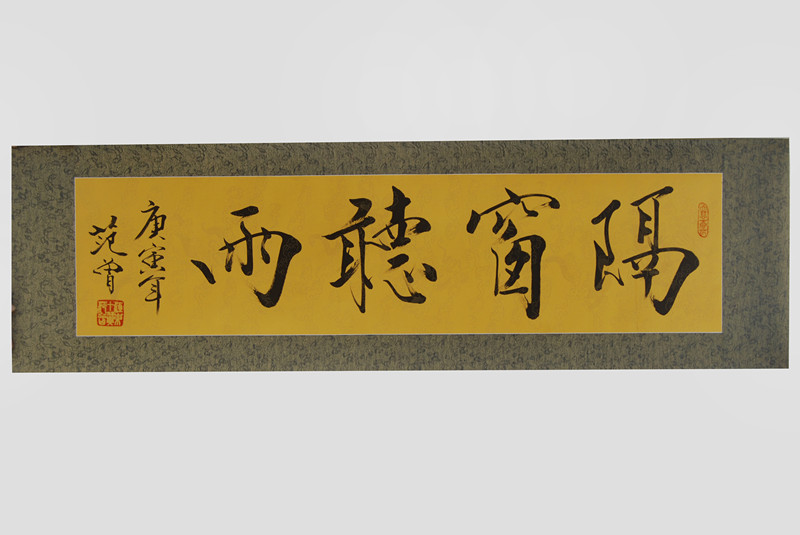 隔窗聽雨
庚寅年
范曾